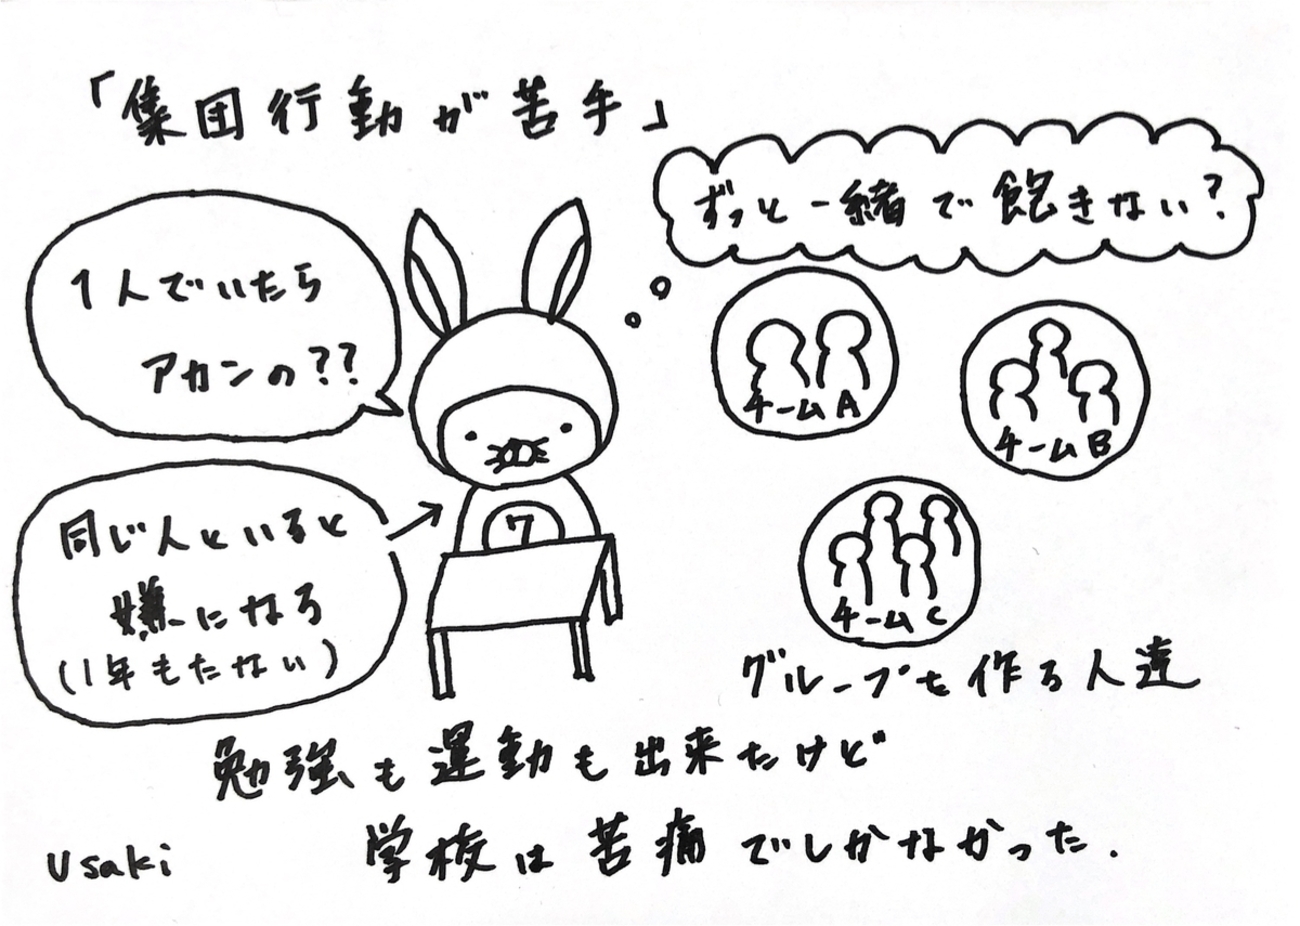 「集団行動が苦手」
ずっと一緒で飽きない？
1人でいたら
アカンの??
チームA
チームB
同じ人といると
嫌になる
(1年もたない)
ワ
チームC
グループを作る人達
勉強も運動も出来たけど
学校は苦痛でしかなかった.
Usaki